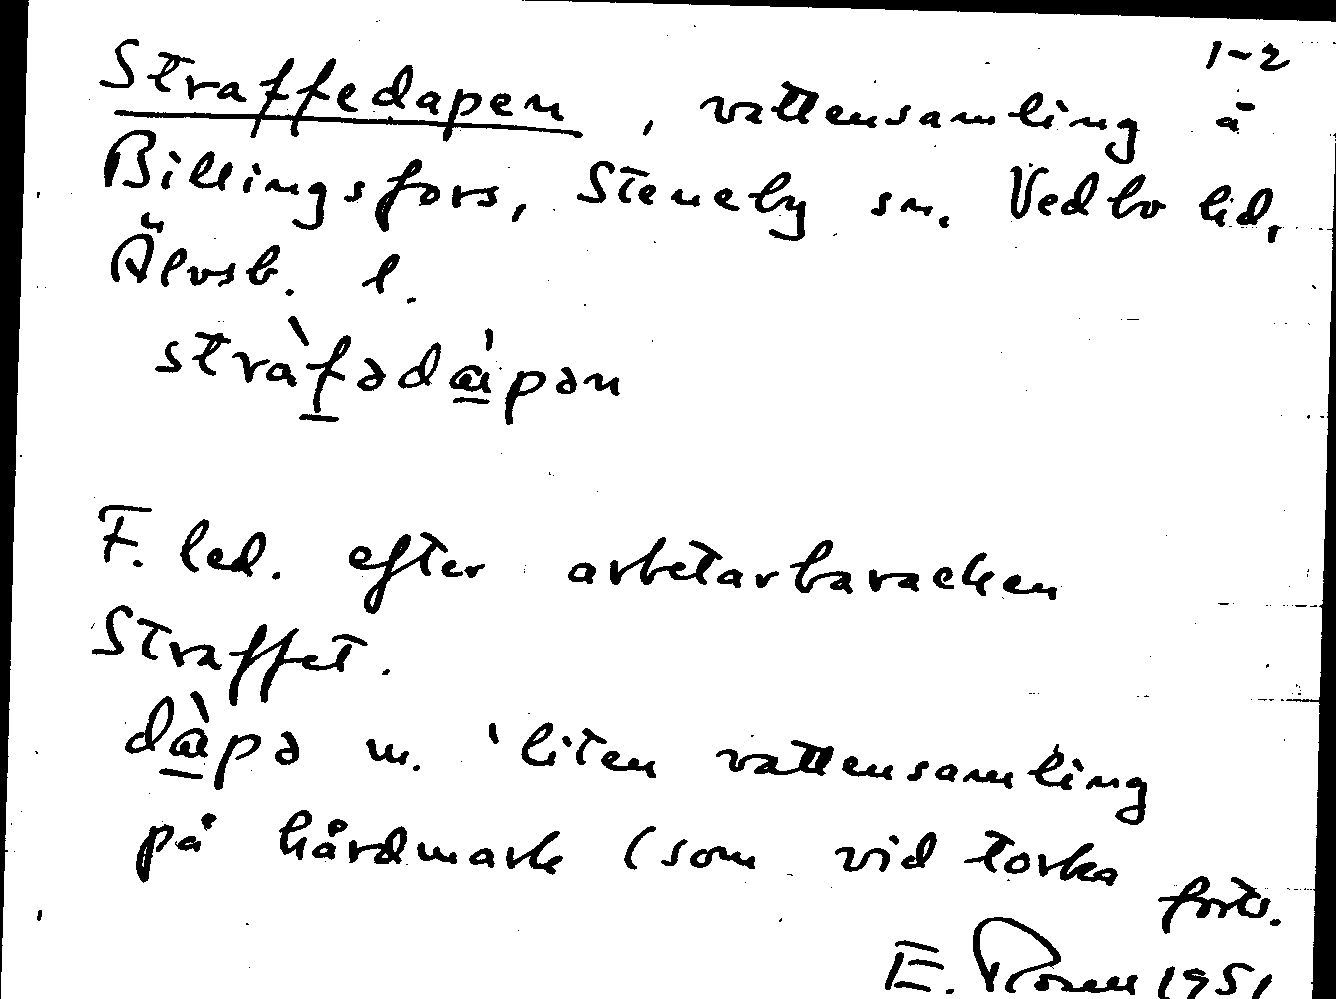 1-2
Straffedapen, vattensamling å
Billingsfors, Steneby sn. Vedbo hd,
Älvsb. l.
stràfədápən
F. led. efter arbetarbaracken
Straffet.
dàpə m. 'liten vattensamling
på hårdmark (som vid torka
forts.
E. Rosen 1951